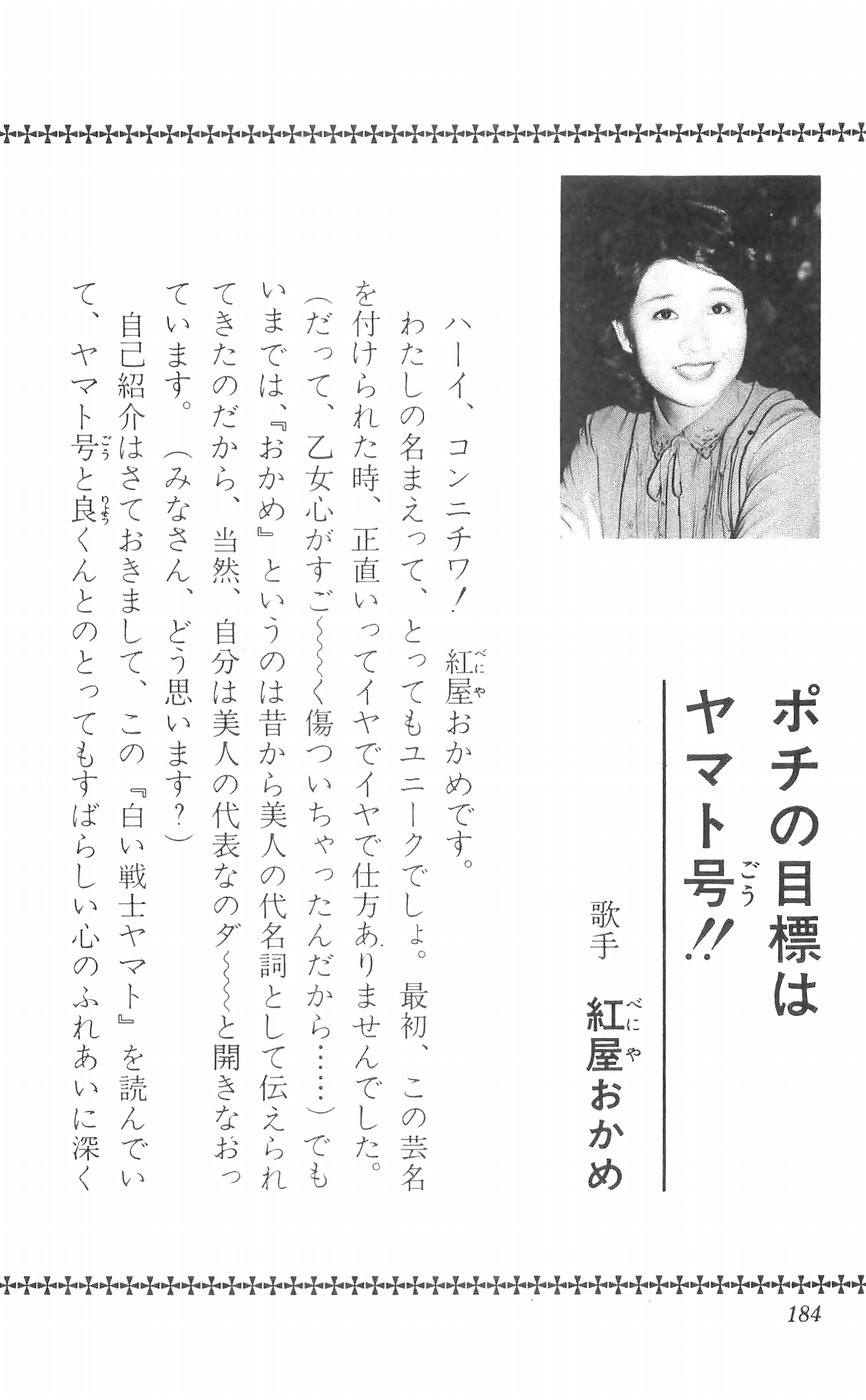 ポチの目標は
ヤマト号!!
歌手　紅屋おかめ
ハーイ、コンニチワ！　紅屋おかめです。
わたしの名まえって、とってもユニークでしょ。最初、この芸名
を付けられた時、正直いってイヤでイヤで仕方ありませんでした。
（だって、乙女心がすご～～～く傷ついちゃったんだから……）でも
いまでは、『おかめ』というのは昔から美人の代名詞として伝えられ
てきたのだから、当然、自分は美人の代表なのダ～～～と開きなおっ
ています。（みなさん、どう思います？）
自己紹介はさておきまして、この『白い戦士ヤマト』を読んでい
て、ヤマト号と良くんとのとってもすばらしい心のふれあいに深く
184